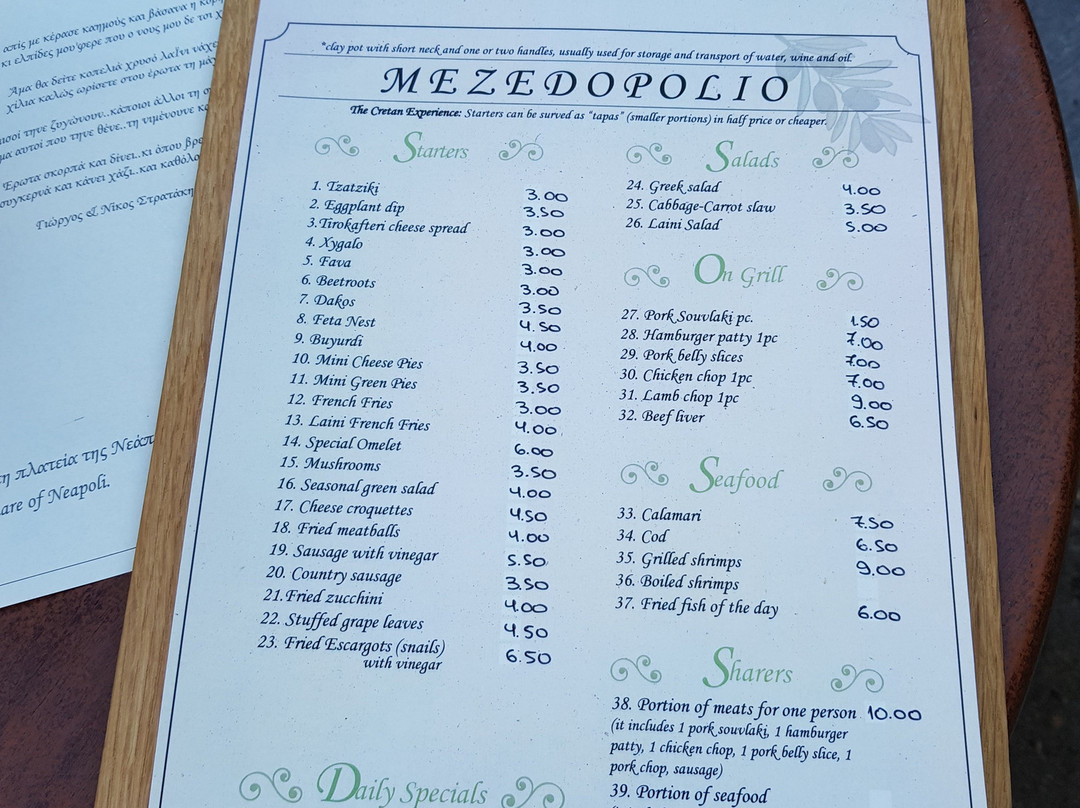 απίς με κέρασε καημούς και βάσανα η
κι ελπίδες μου'φερε που ο νους μου δε
Άμα θα δείτε κοπελιά χρυσό λαΐνι
χίλια καλώς ορίσετε στου έρωτα τη
τηνε ζυγώνουν..κάποιοι άλλοι τη
μα αυτοί που τηνε θένε..τη νιμένουνε
Έρωτα σκορπά και δίνει..κι όπου βρε
συγκερνά και κάνει χάζι..και
Γιώργος & Νίκος Στρατάκη
τη πλατεία της Νεάπ
are of Neapoli.
*clay pot with short neck and one or two handles, usually used for storage and transport of water, wine and oil.
MEZEDOPOLIO
The Cretan Experience: Starters can be surved as "tapas" (smaller portions) in half price or cheaper.
Starters
1. Tzatziki 3.00
2. Eggplant dip 3.50
3.Tirokafteri cheese spread 3.00
4. Xygalo 3.00
5. Fava 3.00
6. Beetroots 3.00
7. Dakos 3.50
8. Feta Nest 4.50
9. Buyurdi 4.00
10. Mini Cheese Pies 3.50
11. Mini Green Pies 3.50
12. French Fries 3.00
13. Laini French Fries 4.00
14. Special Omelet 6.00
15. Mushrooms 3.50
16. Seasonal green salad 4.00
17. Cheese croquettes 4.50
18. Fried meatballs 4.00
19. Sausage with vinegar 5.50
20. Country sausage 3.50
21.Fried zucchini 4.00
22. Stuffed grape leaves 4.50
23. Fried Escargots (snails) 6.50
with vinegar
Daily Specials
Salads
24. Greek salad 4.00
25. Cabbage-Carrot slaw 3.50
26. Laini Salad 5.00
On Grill
27. Pork Souvlaki pc. 1.50
28. Hamburger patty 1pc 7.00
29. Pork belly slices 7.00
30. Chicken chop 1pc 7.00
31. Lamb chop 1pc 9.00
32. Beef liver 6.50
Seafood
33. Calamari 7.50
34. Cod 6.50
35. Grilled shrimps 9.00
36. Boiled shrimps
37. Fried fish of the day 6.00
Sharers
38. Portion of meats for one person 10.00
(it includes 1 pork souvlaki, 1 hamburger
patty, 1 chicken chop, 1 pork belly slice, 1
pork chop, sausage)
39. Portion of seafood